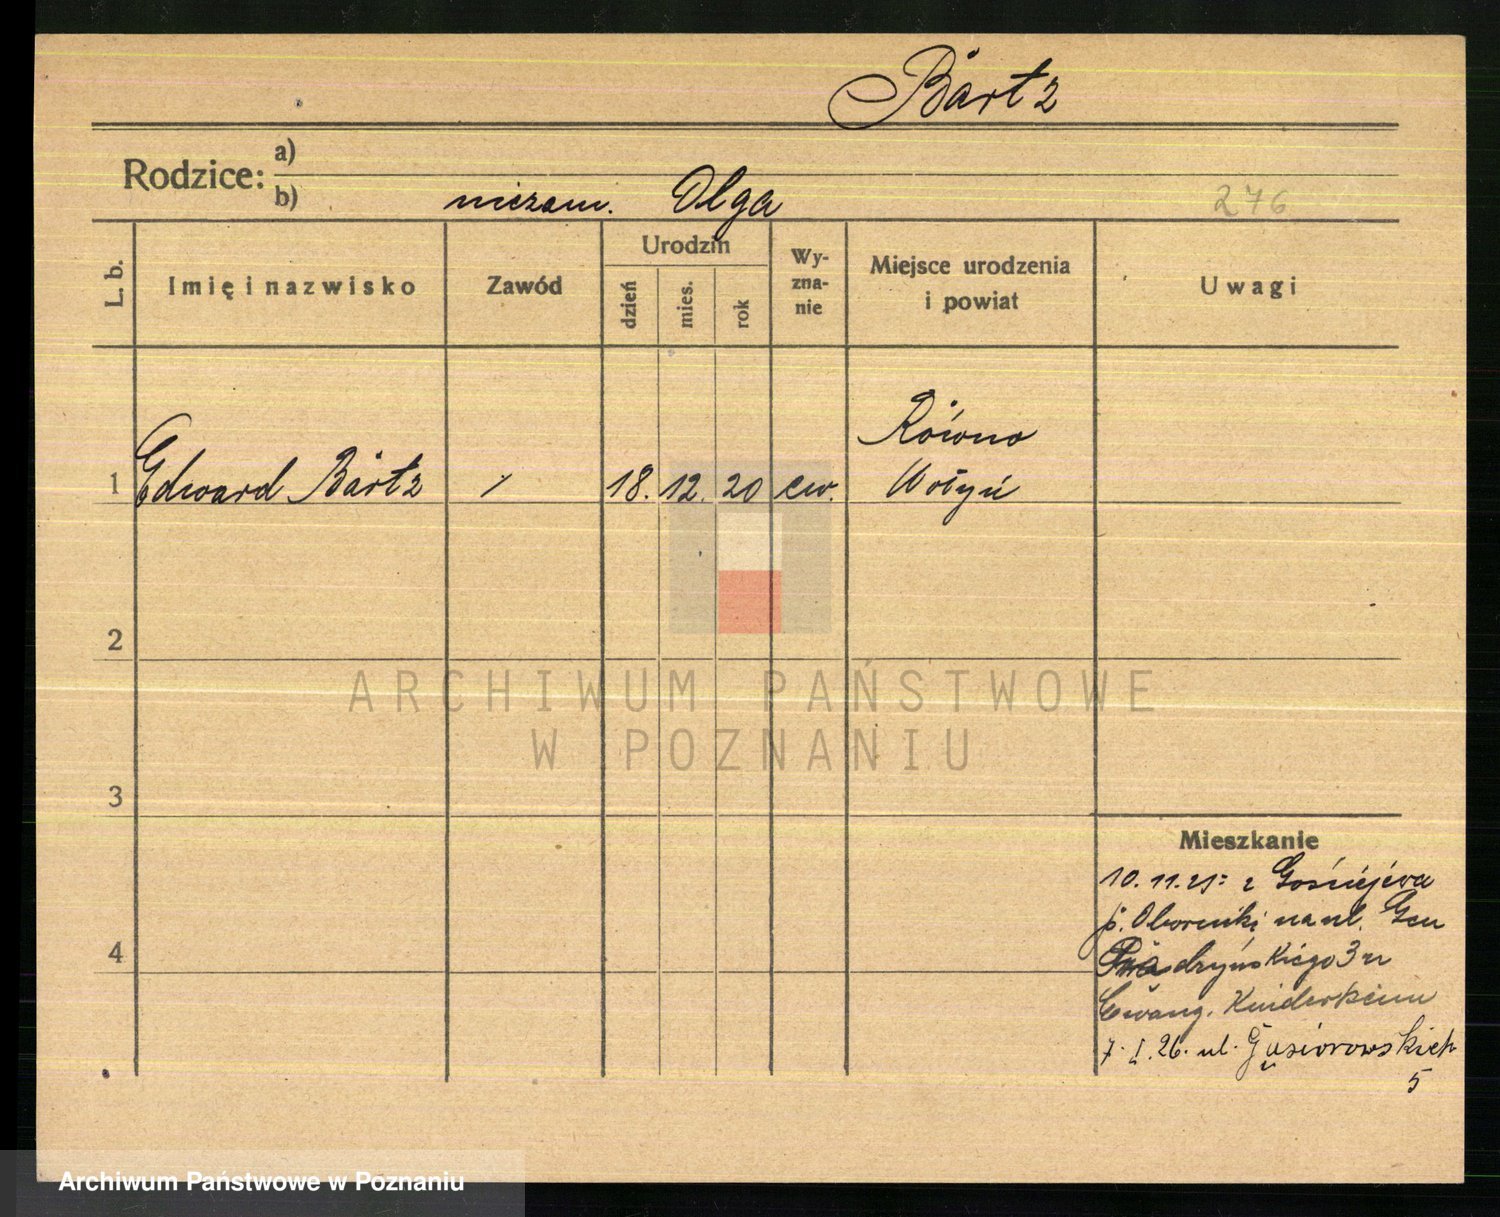 Bartz
Rodzice: a)
b) niezam. Olga
276
L. b. Imię i nazwisko Zawód Urodzin dzień mies. rok Wy-zna-nie Miejsce urodzenia i powiat Uwagi
Równo
1 Edward Bartz / 18. 12. 20 ew. Wołyń
2
ARCHIWUM PAŃSTWOWE
W POZNANIU
3
Mieszkanie
10. 11. 21: z Gościejewa
p. Oborniki na ul. Gen
4
Prądzyńskiego 3 u
Ewang. Kinderheim
7. I. 26. ul. Gąsiorowskich
5
Archiwum Państwowe w Poznaniu